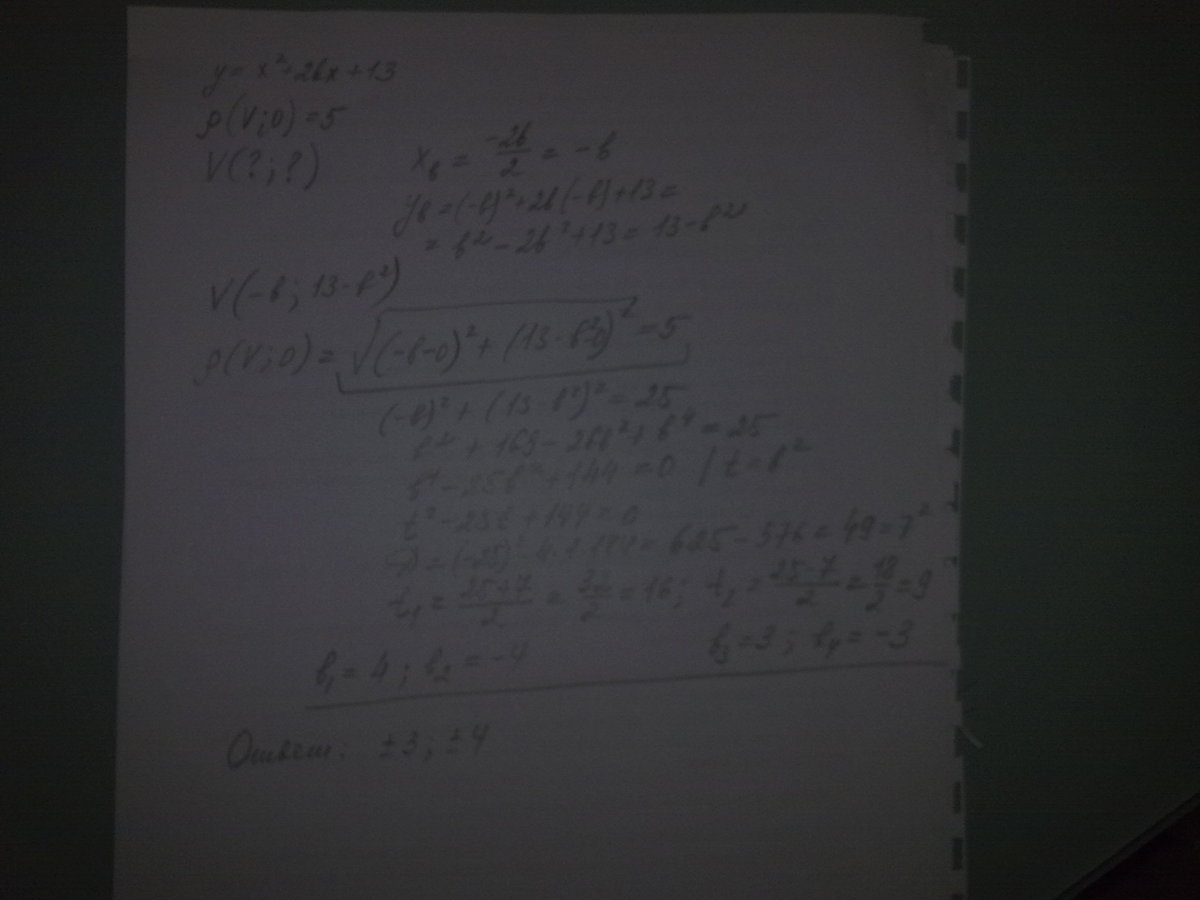 y = x² + 2bx + 13
ρ(V; 0) = 5
V(?; ?)
x_b = -2b/2 = -b
y_b = (-b)² + 2b(-b) + 13 =
= b² - 2b² + 13 = 13 - b²
V(-b; 13 - b²)
ρ(V; 0) = √((-b-0)² + (13 - b² - 0)²) = 5
(-b)² + (13 - b²)² = 25
b² + 169 - 26b² + b⁴ = 25
b⁴ - 25b² + 144 = 0 / t = b²
t² - 25t + 144 = 0
D = (-25)² - 4·1·144 = 625 - 576 = 49 = 7²
t₁ = (25+7)/2 = 32/2 = 16; t₂ = (25-7)/2 = 18/2 = 9
b₁ = 4; b₂ = -4 b₃ = 3; b₄ = -3
Ответ: ±3; ±4